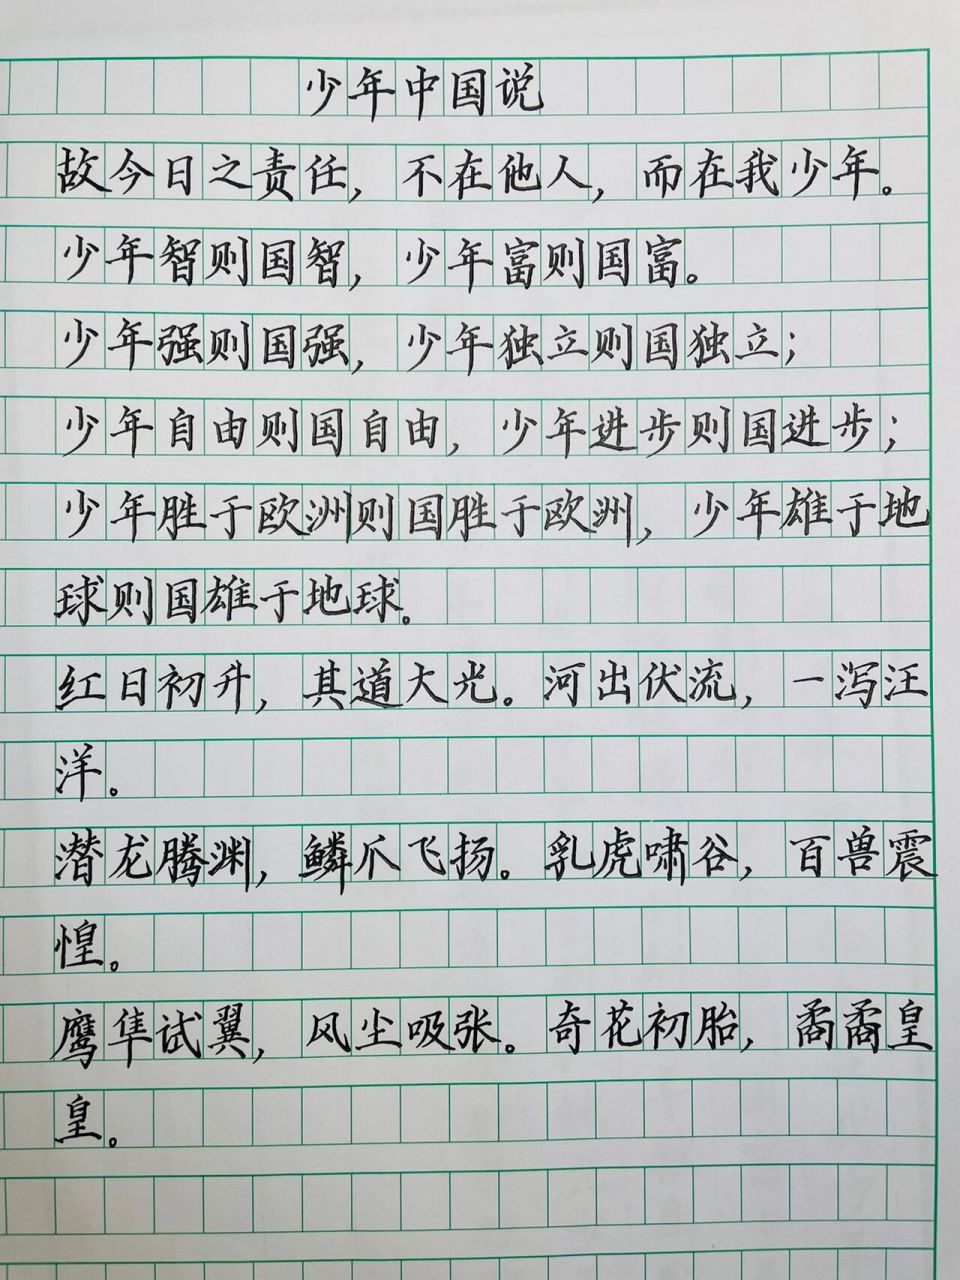 少年中国说
故今日之责任，不在他人，而在我少年。
少年智则国智，少年富则国富。
少年强则国强，少年独立则国独立；
少年自由则国自由，少年进步则国进步；
少年胜于欧洲则国胜于欧洲，少年雄于地
球则国雄于地球。
红日初升，其道大光。河出伏流，一泻汪
洋。
潜龙腾渊，鳞爪飞扬。乳虎啸谷，百兽震
惶。
鹰隼试翼，风尘吸张。奇花初胎，矞矞皇
皇。